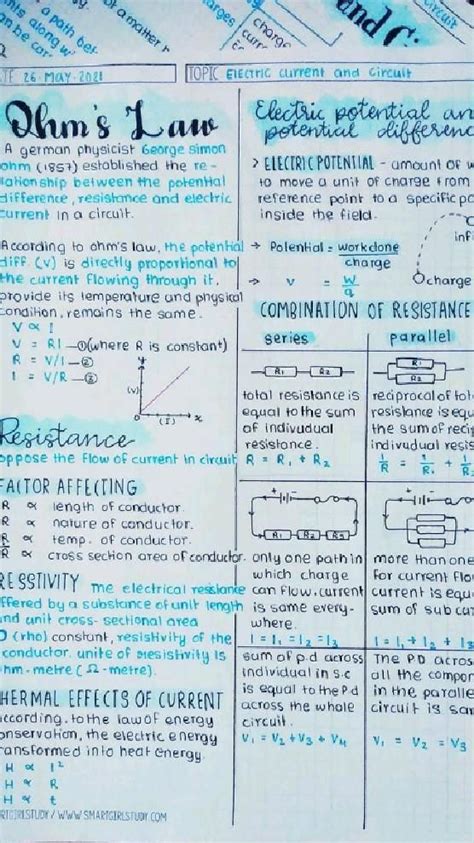 a path bet
nts along w
an be cor
ot a matter
arges
charge
curr
and Ci
circuit
TE 26-MAY-2021
TOPIC Electric current and circuit
Ohm's Law
A german physicist George simon
ohm (1857) established the re-
lationship between the potential
difference, resistance and electric
current in a circuit.
According to ohm's law, the potential
diff. (V) is directly proportional to
the current flowing through it,
provide its temperature and physical
condition, remains the same.
V ∝ I
V = RI —①(where R is constant)
R = V/I —②
I = V/R —③
(V)
(I)
x
Resistance
oppose the flow of current in circuit
FACTOR AFFECTING
R ∝ length of conductor.
R ∝ nature of conductor.
R ∝ temp. of conductor.
R ∝ cross section area of conductor.
RESSTIVITY The electrical resistance
ffered by a substance of unit length
and unit cross-sectional area
(rho) constant, resistivity of the
conductor. unite of resistivity is
hm-metre (Ω-metre).
HERMAL EFFECTS OF CURRENT
according. to the law of energy
onservation, the electric energy
ransformed into heat energy.
H ∝ I²
H ∝ R
H ∝ t
RTGIRLSTUDY / WWW.SMARTGIRLSTUDY.COM
Electric potential an
potential differenc
> ELECTRIC POTENTIAL - amount of w
to move a unit of charge from
reference point to a specific po
inside the field.
infi
→ Potential = workdone
charge
→ V = W
q
charge
COMBINATION OF RESISTANCE
series
parallel
R1 R2
R1
R2
total resistance is
equal to the sum
of indivudual
resistance.
R = R1 + R2
reciprocal of tot
resistance is equ
the sum of recip
indivudual resis
1/R = 1/R1 + 1/R2
R1 R2 R3
only one path in
which charge
can flow. current
is same every-
where.
I = I1 = I2 = I3
more than one
for current flo
current is equa
sum of sub cur
I = I1 + I2 + I3
sum of p.d across
individual in s.c
is equal to the P.d
across the whole
circuit.
V1 = V2 + V3 + V4
The PD across
all the compon
in the paralle
circuit is sam
V1 = V2 = V3